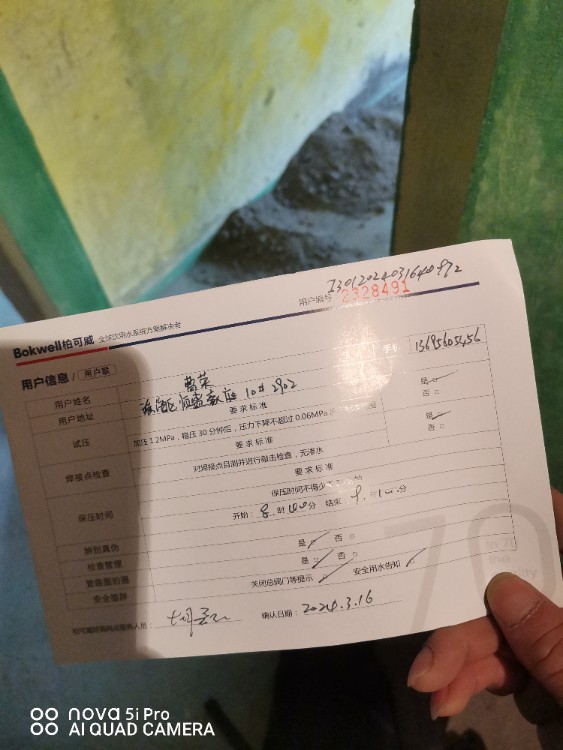 I3012024031640972
用户编号 2328491
Bokwell柏可威 全球饮用水系统方案解决者
用户信息 / 用户联
用户姓名 曹荣 手机 13695605456
用户地址 10# 2902
要求标准
试压 加压1.2MPa，稳压30分钟后，压力下降不超过0.06MPa 是 否
要求标准
焊接点检查 对焊接点目测并进行敲击检查，无渗水 是 否
要求标准
保压时间 保压时间不得少
开始： 8 时 00 分 结束： 9 时 00 分
辨别真伪 是 否
检查管理 是 否
管路图拍照 关闭总阀门等提示 安全用水告知
安全提醒
服务人员： 确认日期： 2024.3.16
79
nova 5i Pro
AI QUAD CAMERA